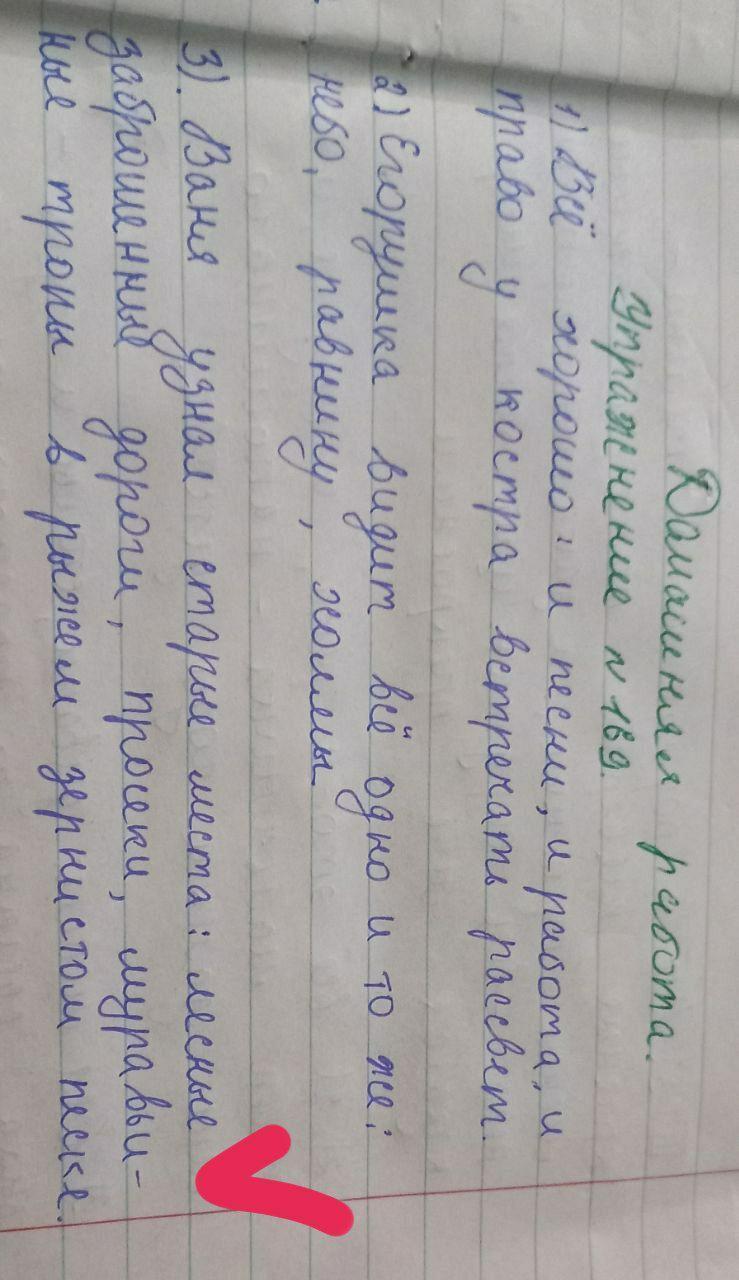 Домашняя работа.
Упражнение N 169.
1) Всё хорошо: и песни, и работа, и
право у костра встречать рассвет.
2) Егорушка видит всё одно и то же:
небо, равнину, холмы
3). Ваня узнал старые места: лесные
заброшенные дороги, просеки, муравьи-
ные тропы в рыжем зернистом песке.